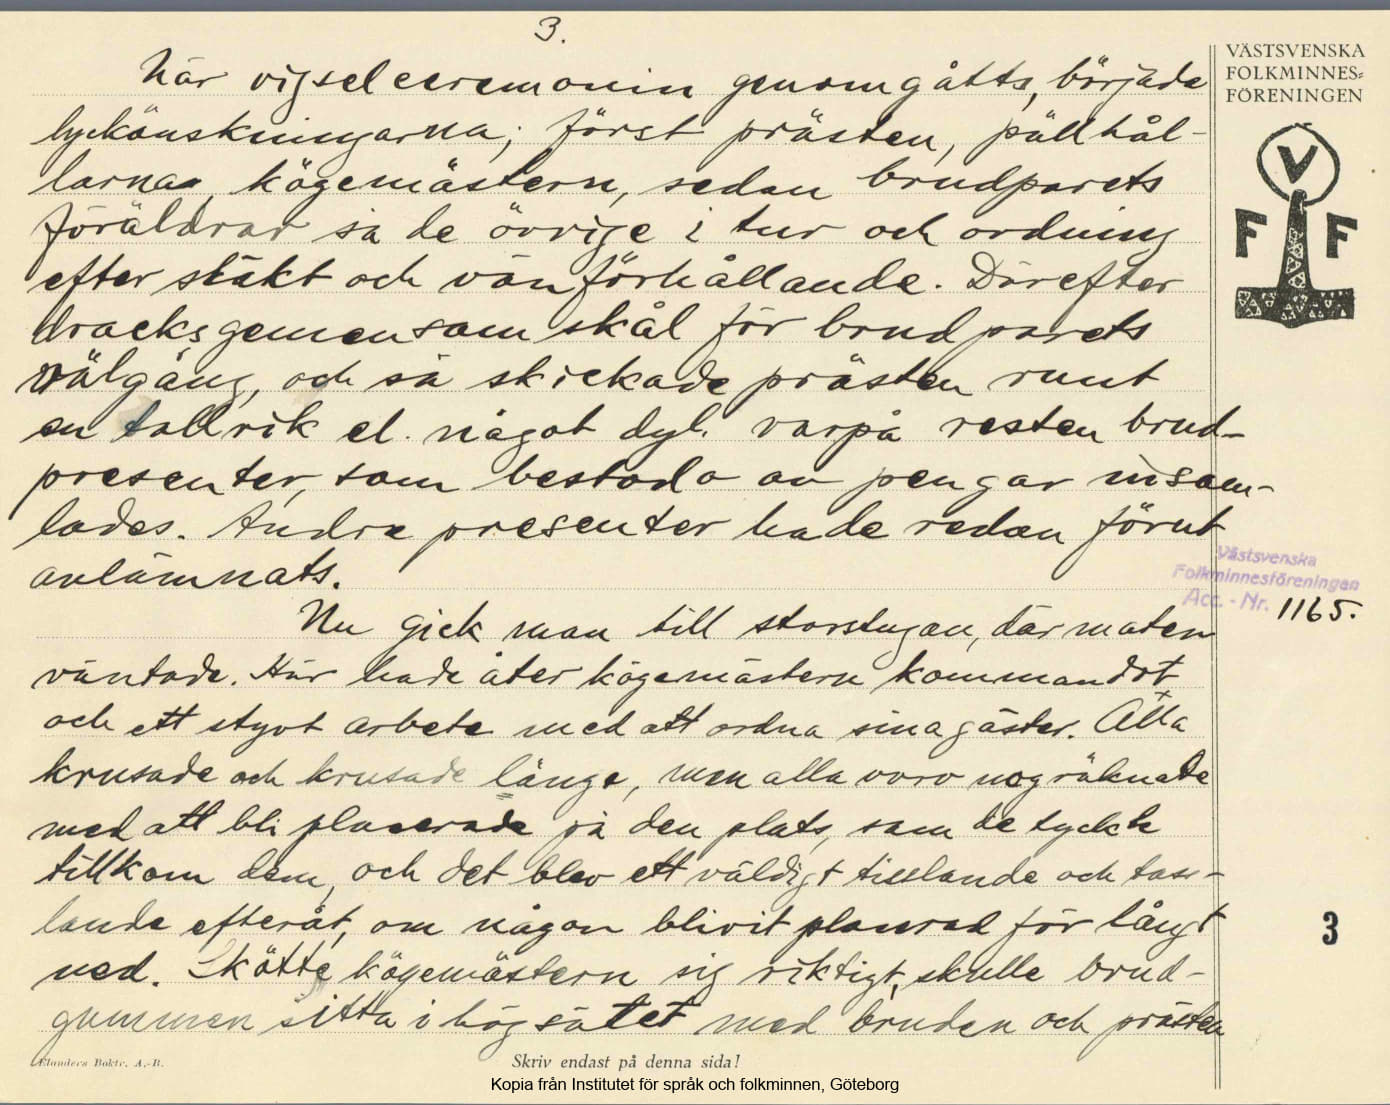 3.
När vigselceremonin genomgåtts, började
lyckönskningarna; först prästen, pällhål-
larna, kögemästern, sedan brudparets
föräldrar så de övrige i tur och ordning
efter släkt och vänförhållande. Därefter
dracks gemensam skål för brudparets
välgång, och så skickade prästen runt
en tallrik el. något dyl. varpå resten brud-
presenter, som bestodo av pengar insam-
lades. Andra presenter hade redan förut
avlämnats.
Nu gick man till storstugan, där maten
väntade. Här hade åter kögemästern kommandot
och ett styvt arbete med att ordna sina gäster. Alla
krusade och krusade länge, men alla voro nog räknade
med att bli placerade på den plats, som de tyckte
tillkom dem, och det blev ett väldigt tisslande och tass-
lande efteråt, om någon blivit placerad för långt
ned. Skötte kögemästern sig riktigt, skulle brud-
gummen sitta i högsätet med bruden och prästen
VÄSTSVENSKA
FOLKMINNES-
FÖRENINGEN
V
F F
Västsvenska
Folkminnesföreningen
Acc. - Nr. 1165.
3
Elanders Boktr. A.-B.
Skriv endast på denna sida!
Kopia från Institutet för språk och folkminnen, Göteborg